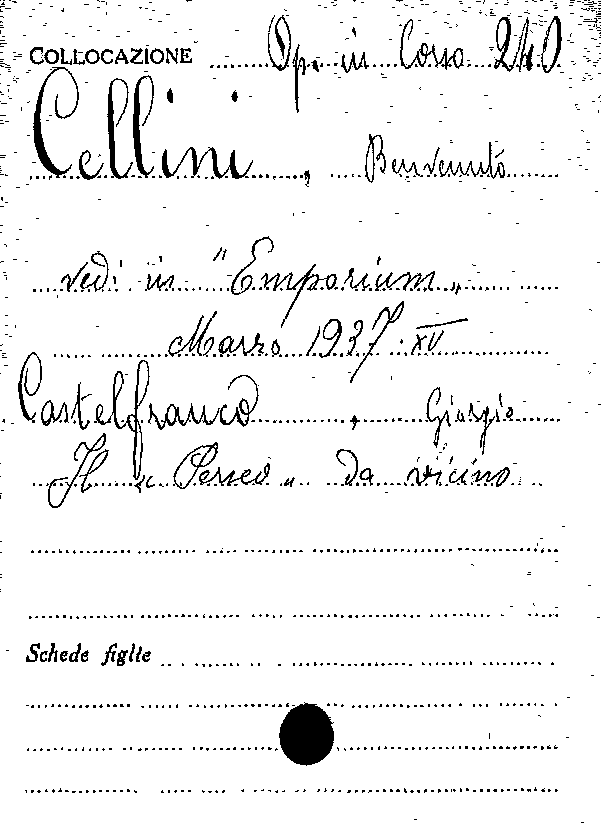 COLLOCAZIONE Op. in Corso 240
Cellini, Benvenuto
vedi in "Emporium"
Marzo 1937·XV
Castelfranco, Giorgio
Il "Perseo" da vicino
Schede figlie